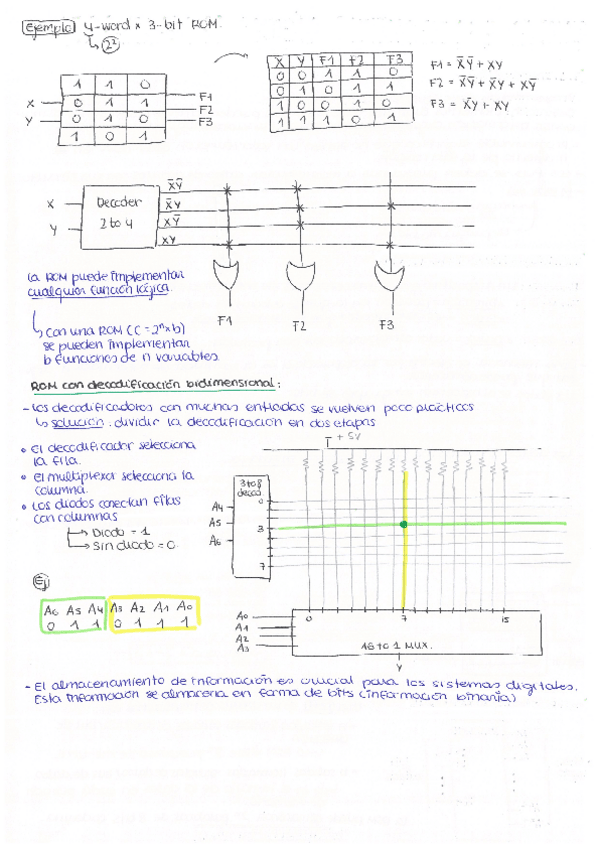 Ejemplo 4-word x 3-bit ROM.
2²
1 1 0
X 0 1 1 F1
F2
Y 0 1 0 F3
1 0 1
X Y F1 F2 F3
0 0 1 1 0
0 1 0 1 1
1 0 0 1 0
1 1 1 0 1
F1 = X̄Ȳ + XY
F2 = X̄Ȳ + X̄Y + XȲ
F3 = X̄Y + XY
X
Y
Decoder
2 to 4
X̄Ȳ
X̄Y
XȲ
XY
F1 F2 F3
la ROM puede implementar
cualquier función lógica.
con una ROM (C = 2ⁿxb)
se pueden implementar
b funciones de n variables
ROM con decodificación bidimensional:
- Los decodificadores con muchas entradas se vuelven poco prácticos
solución: dividir la decodificación en dos etapas
• El decodificador selecciona
la fila.
• el multiplexor selecciona la
columna.
• Los diodos conectan filas
con columnas
Diodo = 1
Sin diodo = 0
+ 5V
3 to 8
decod.
0
3
7
A4
A5
A6
Ej
A6 A5 A4 A3 A2 A1 A0
0 1 1 0 1 1 1
A0
A1
A2
A3
0 7 15
16 to 1 MUX.
Y
- El almacenamiento de información es crucial para los sistemas digitales.
Esta información se almacena en forma de bits (información binaria)